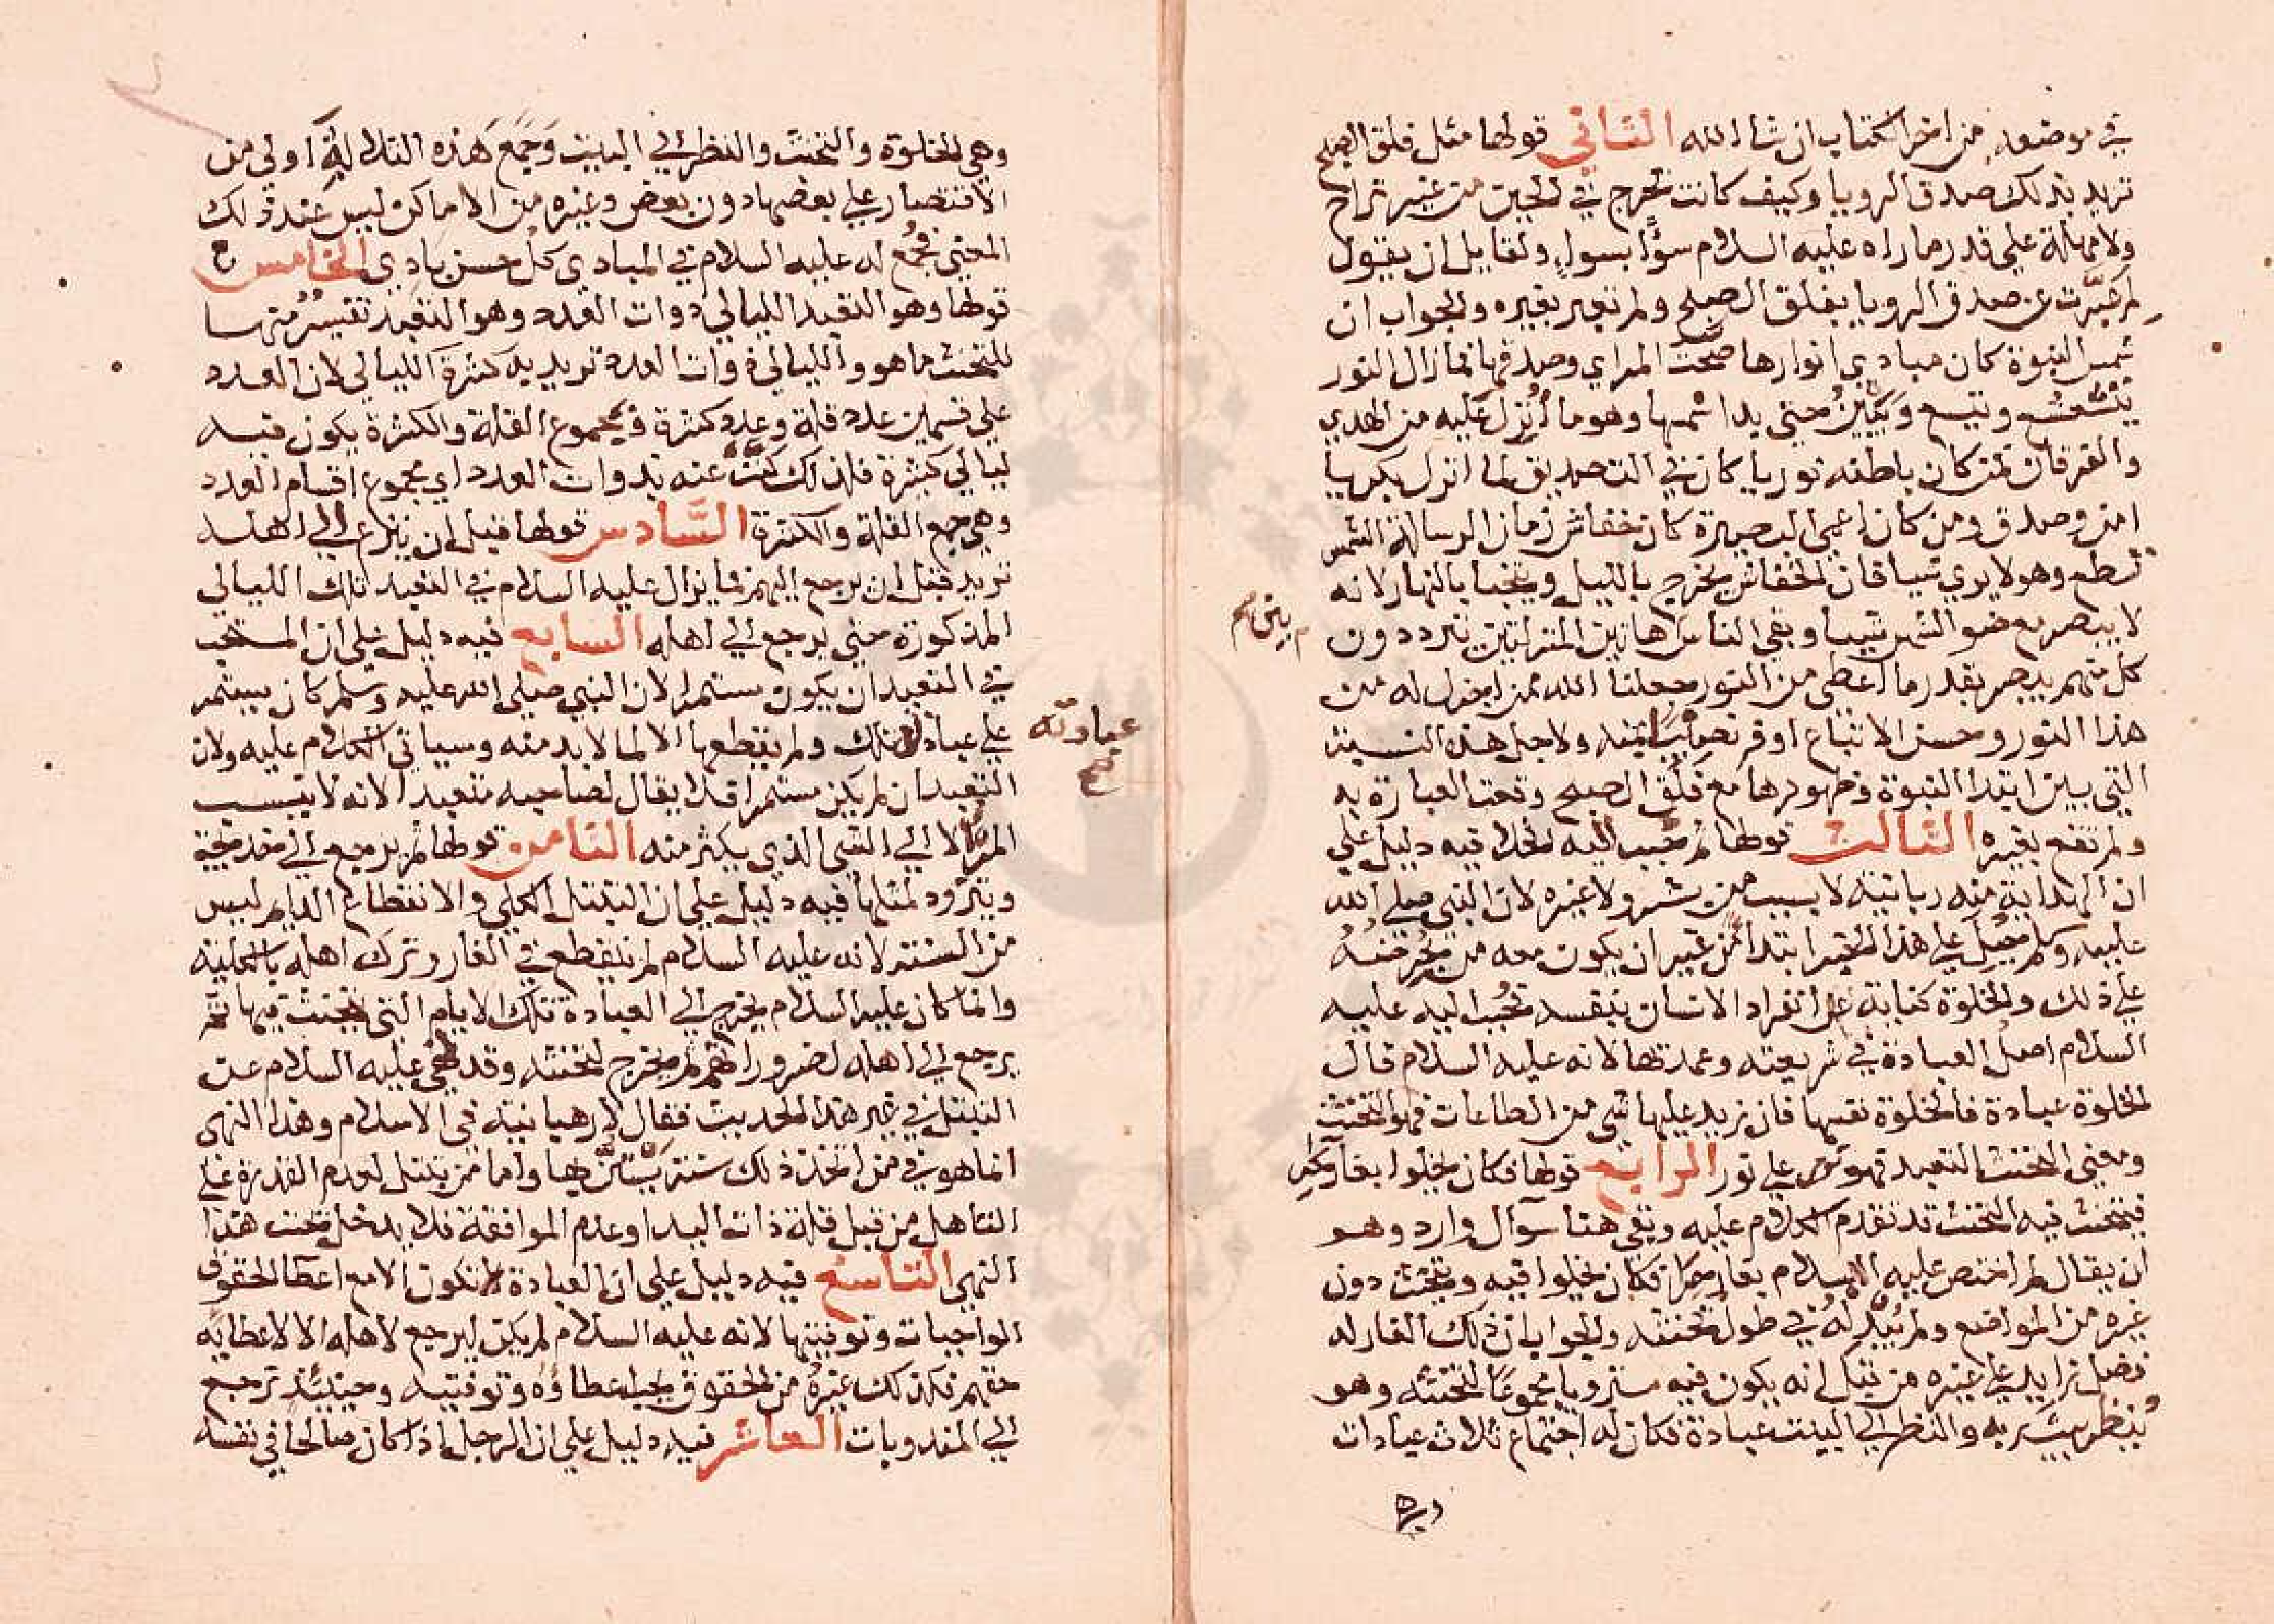 في موضعه من اخر الكتاب ان شا الله الثاني قولها مثل فلق الصبح
تريد بذلك صدق الرويا وكيف كانت تخرج في الحين من غير تراخ
ولا مهلة علي قدر ما راه عليه السلام سوًّا بسوا ولقايل ان يقول
لم عبَّرت عن صدق الرويا بفلق الصبح ولم تعبر بغيره والجواب ان
شمس النبوة كان مبادي انوارها صحت المراي وصدقها فما زال النور
يتشعشع ويتسع حتي بدا شمسها وهو ما أُنزل عليه من الهدي
والفرقان فمن كان باطنه نوريا كان في التصديق لما انزل بكريا
امن وصدق ومن كان اعمي البصيرة كان خفاش زمان الرسالة الشمس
تسطع وهو لا يري شيا فان الخفاش يخرج بالليل ويتخبا بالنهار لانه
لا يبصر مع ضو الشمس شيا وبقي الناس هاتين المنزلتين يترددون
م بين صح
كل منهم يبصر بقدر ما اعطي من النور جعلنا الله ممن اجزل له من
هذا النور وحسن الاتباع اوفر نصيب بمنه ولاجل هذه النسبة
التي بين ابتدا النبوة وظهورها مع فلق الصبح وقعت العبارة به
ولم تقع بغيره الثالث قولها ثم حبب اليه الخلا فيه دليل علي
ان الهداية منه ربانية لا بسبب من بشر ولا غيره لان النبي صلي الله
عليه وسلم جُبِل علي هذا الخير ابتدا من غير ان يكون معه من يحرضه
علي ذلك والخلوة كناية عن انفراد الانسان بنفسه فحُبب اليه عليه
السلام اصل العبادة في شريعته وعمدتها لانه عليه السلام قال
الخلوة عبادة فالخلوة نفسها فان زيد عليها شي من الطاعات فهو التحنث
ومعني التحنث التعبد فهو علي نور الرابع قولها فكان يخلوا بغار
فيتحنث فيه التحنث قد تقدم الكلام عليه وبقي هنا سوال وارد وهو
ان يقال لم اختص عليه السلام بغار حرا فكان يخلوا فيه ويتحنث دون
غيره من المواضع ولم يُبدله في طول تحنثه والجواب ان ذلك الغار له
فضل زايد علي غيره من قبل انه يكون فيه منزويا مجموعًا لتحنثه وهو
يُنظر بيت ربه والنظر الي البيت عبادة فكان له اجتماع ثلاث عبادات
وهي الخلوة والتحنث والنظر الي البيت وَجَمع هَذه الثلاثة اولي من
الاقتصار علي بعضها دون بعض وغيره من الاماكن ليس عنده ذلك
المعني فجُمع له عليه السلام في المبادي كل حسن بادي الخامس
قولها وهو التعبد الليالي ذوات العدد وهو التعبد تفسير منها
للتحنث ما هو والليالي ذوات العدد تريد به كثرة الليالي لان العدد
علي قسمين عدد قلة وعدد كثرة ومجموع القلة والكثرة يكون فيه
ليالي كثيرة فلذلك كنت عنه بذوات العدد اي مجموع اقسام العدد
وهي جمع القلة والكثرة السّادس قولها قبل ان ينزع الي اهله
تريد قبل ان يرجع اليهم فما يزال عليه السلام في التعبد تلك الليالي
المذكورة حتي يرجع الي اهله السابع فيه دليل علي ان المستحب
في التعبد ان يكون مستمرا لان النبي صلي الله عليه وسلم كان يستمر
علي عبادته تلك ولم يقطعها الا لما لا بد منه وسياتي الكلام عليه ولان
عبادته صح
التعبد ان لم يكن مستمرا فلا يقال لصاحبه متعبدا لانه لا ينسب
المرا الا الي الشي الذي يكثر منه الثامن قولها ثم يرجع الي خديجة
ويتزود لمثلها فيه دليل علي ان التبتل الكلي والانقطاع الدايم ليس
من السنة لانه عليه السلام لم ينقطع في الغار وترك اهله بالكلية
وانما كان عليه السلام يخرج الي العبادة تلك الايام التي يتحنث فيها ثم
يرجع الي اهله لضروراتهم ثم يخرج لتحنثه وقد نهي عليه السلام عن
التبتل في غير هذا الحديث فقال لا رهبانية في الاسلام وهذا النهي
انما هو في من اتخذ ذلك سنة يَستنُّ بها واما من تبتل لعدم القدرة علي
التاهل من قبل قلة ذات اليد او عدم الموافقة فلا يدخل تحت هذا
النهي التاسع فيه دليل علي ان العبادة لا تكون الا مع اعطا الحقوق
الواجبات وتوفيتها لانه عليه السلام لم يكن ليرجع لاهله الا لاعطايه
حقهم فكذلك غيره من الحقوق يجب اعطاوه وتوفيته وحينيذ ترجع
الي المندوبات العاشر فيه دليل علي ان الرجل اذا كان صالحا في نفسه